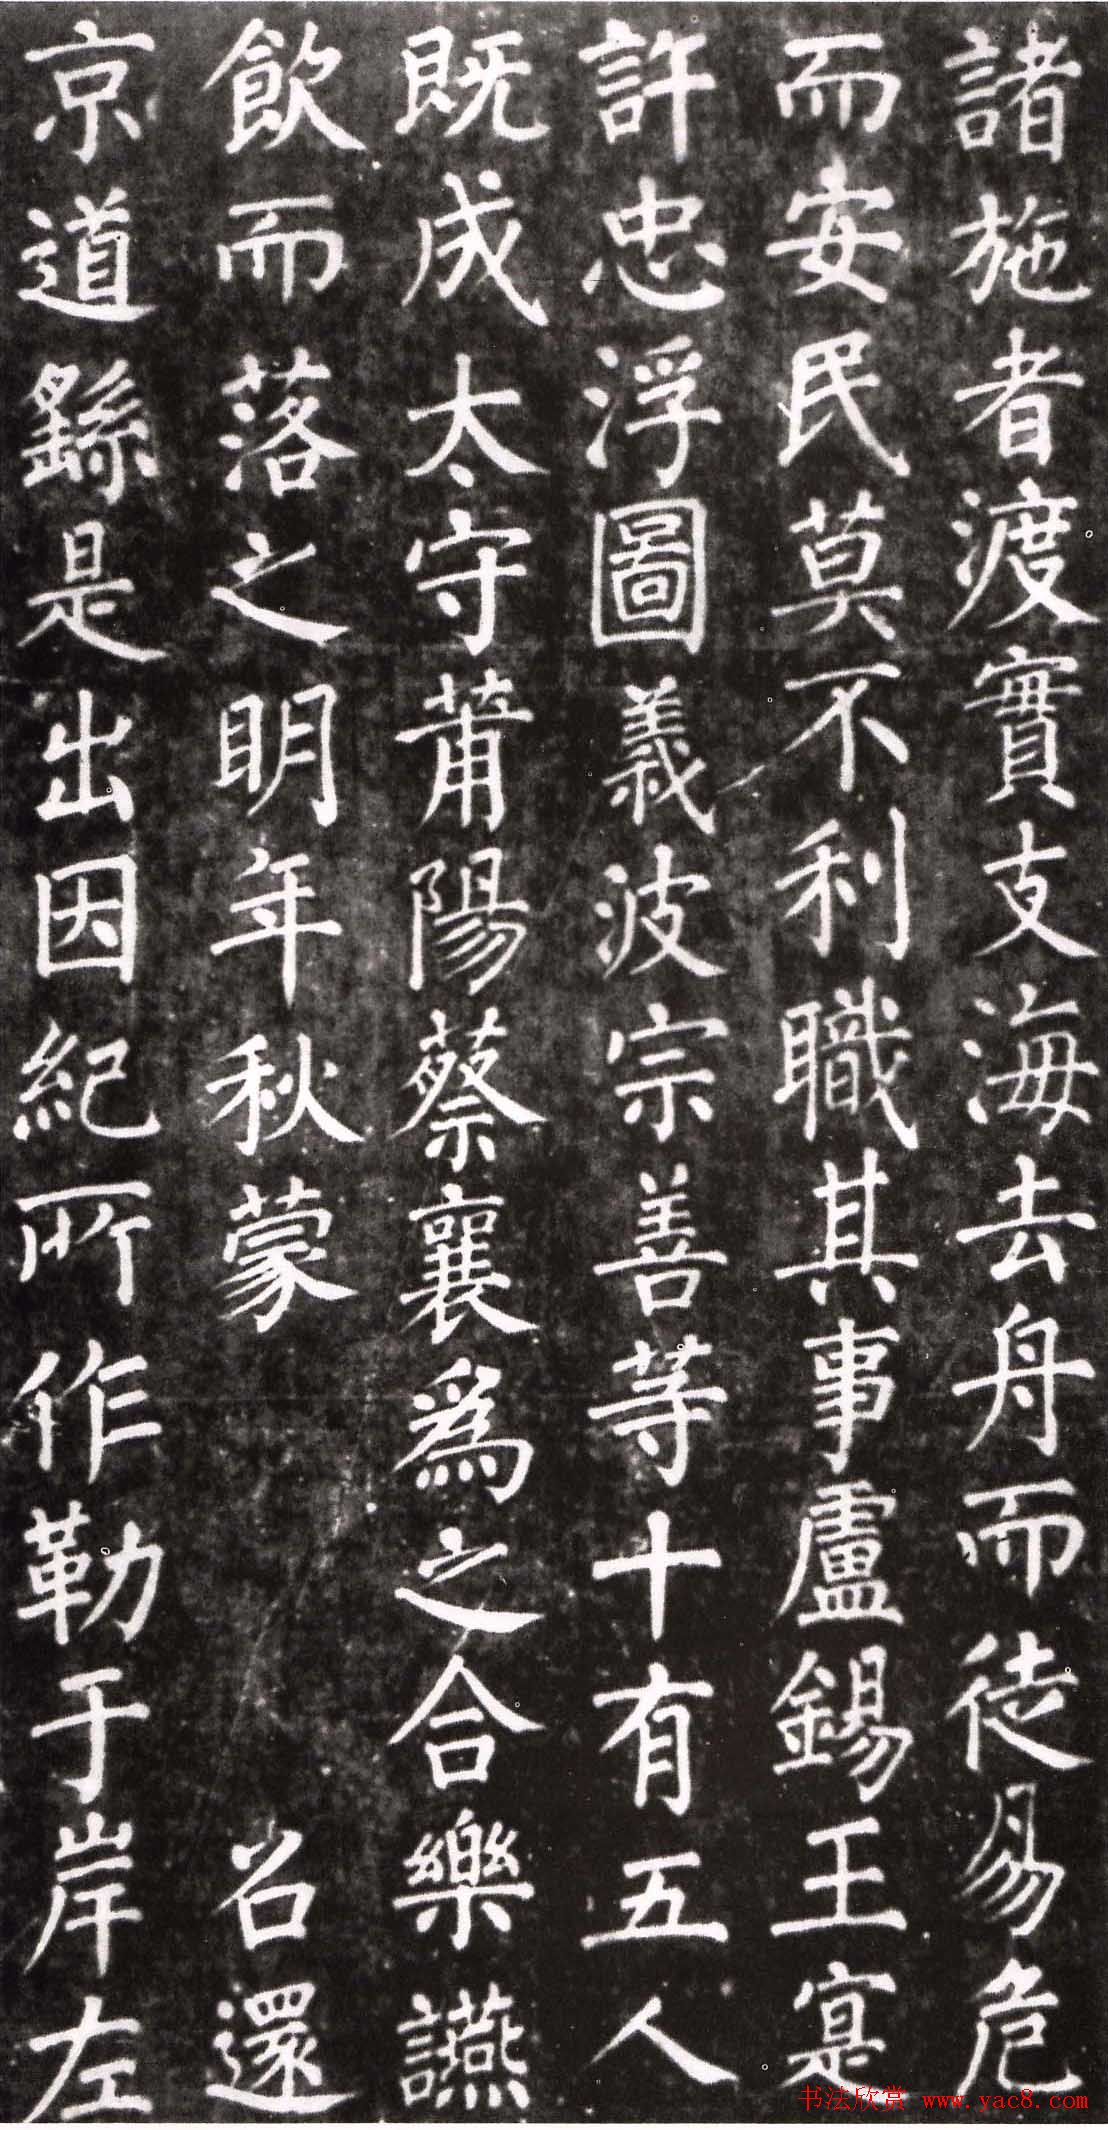 諸施者渡實支海去舟而徒易危
而安民莫不利職其事盧錫王寔
許忠浮圖義波宗善等十有五人
既成太守莆陽蔡襄爲之合樂讌
飲而落之明年秋蒙 召還
京道繇是出因紀所作勒于岸左
书法欣赏 www.yac8.com